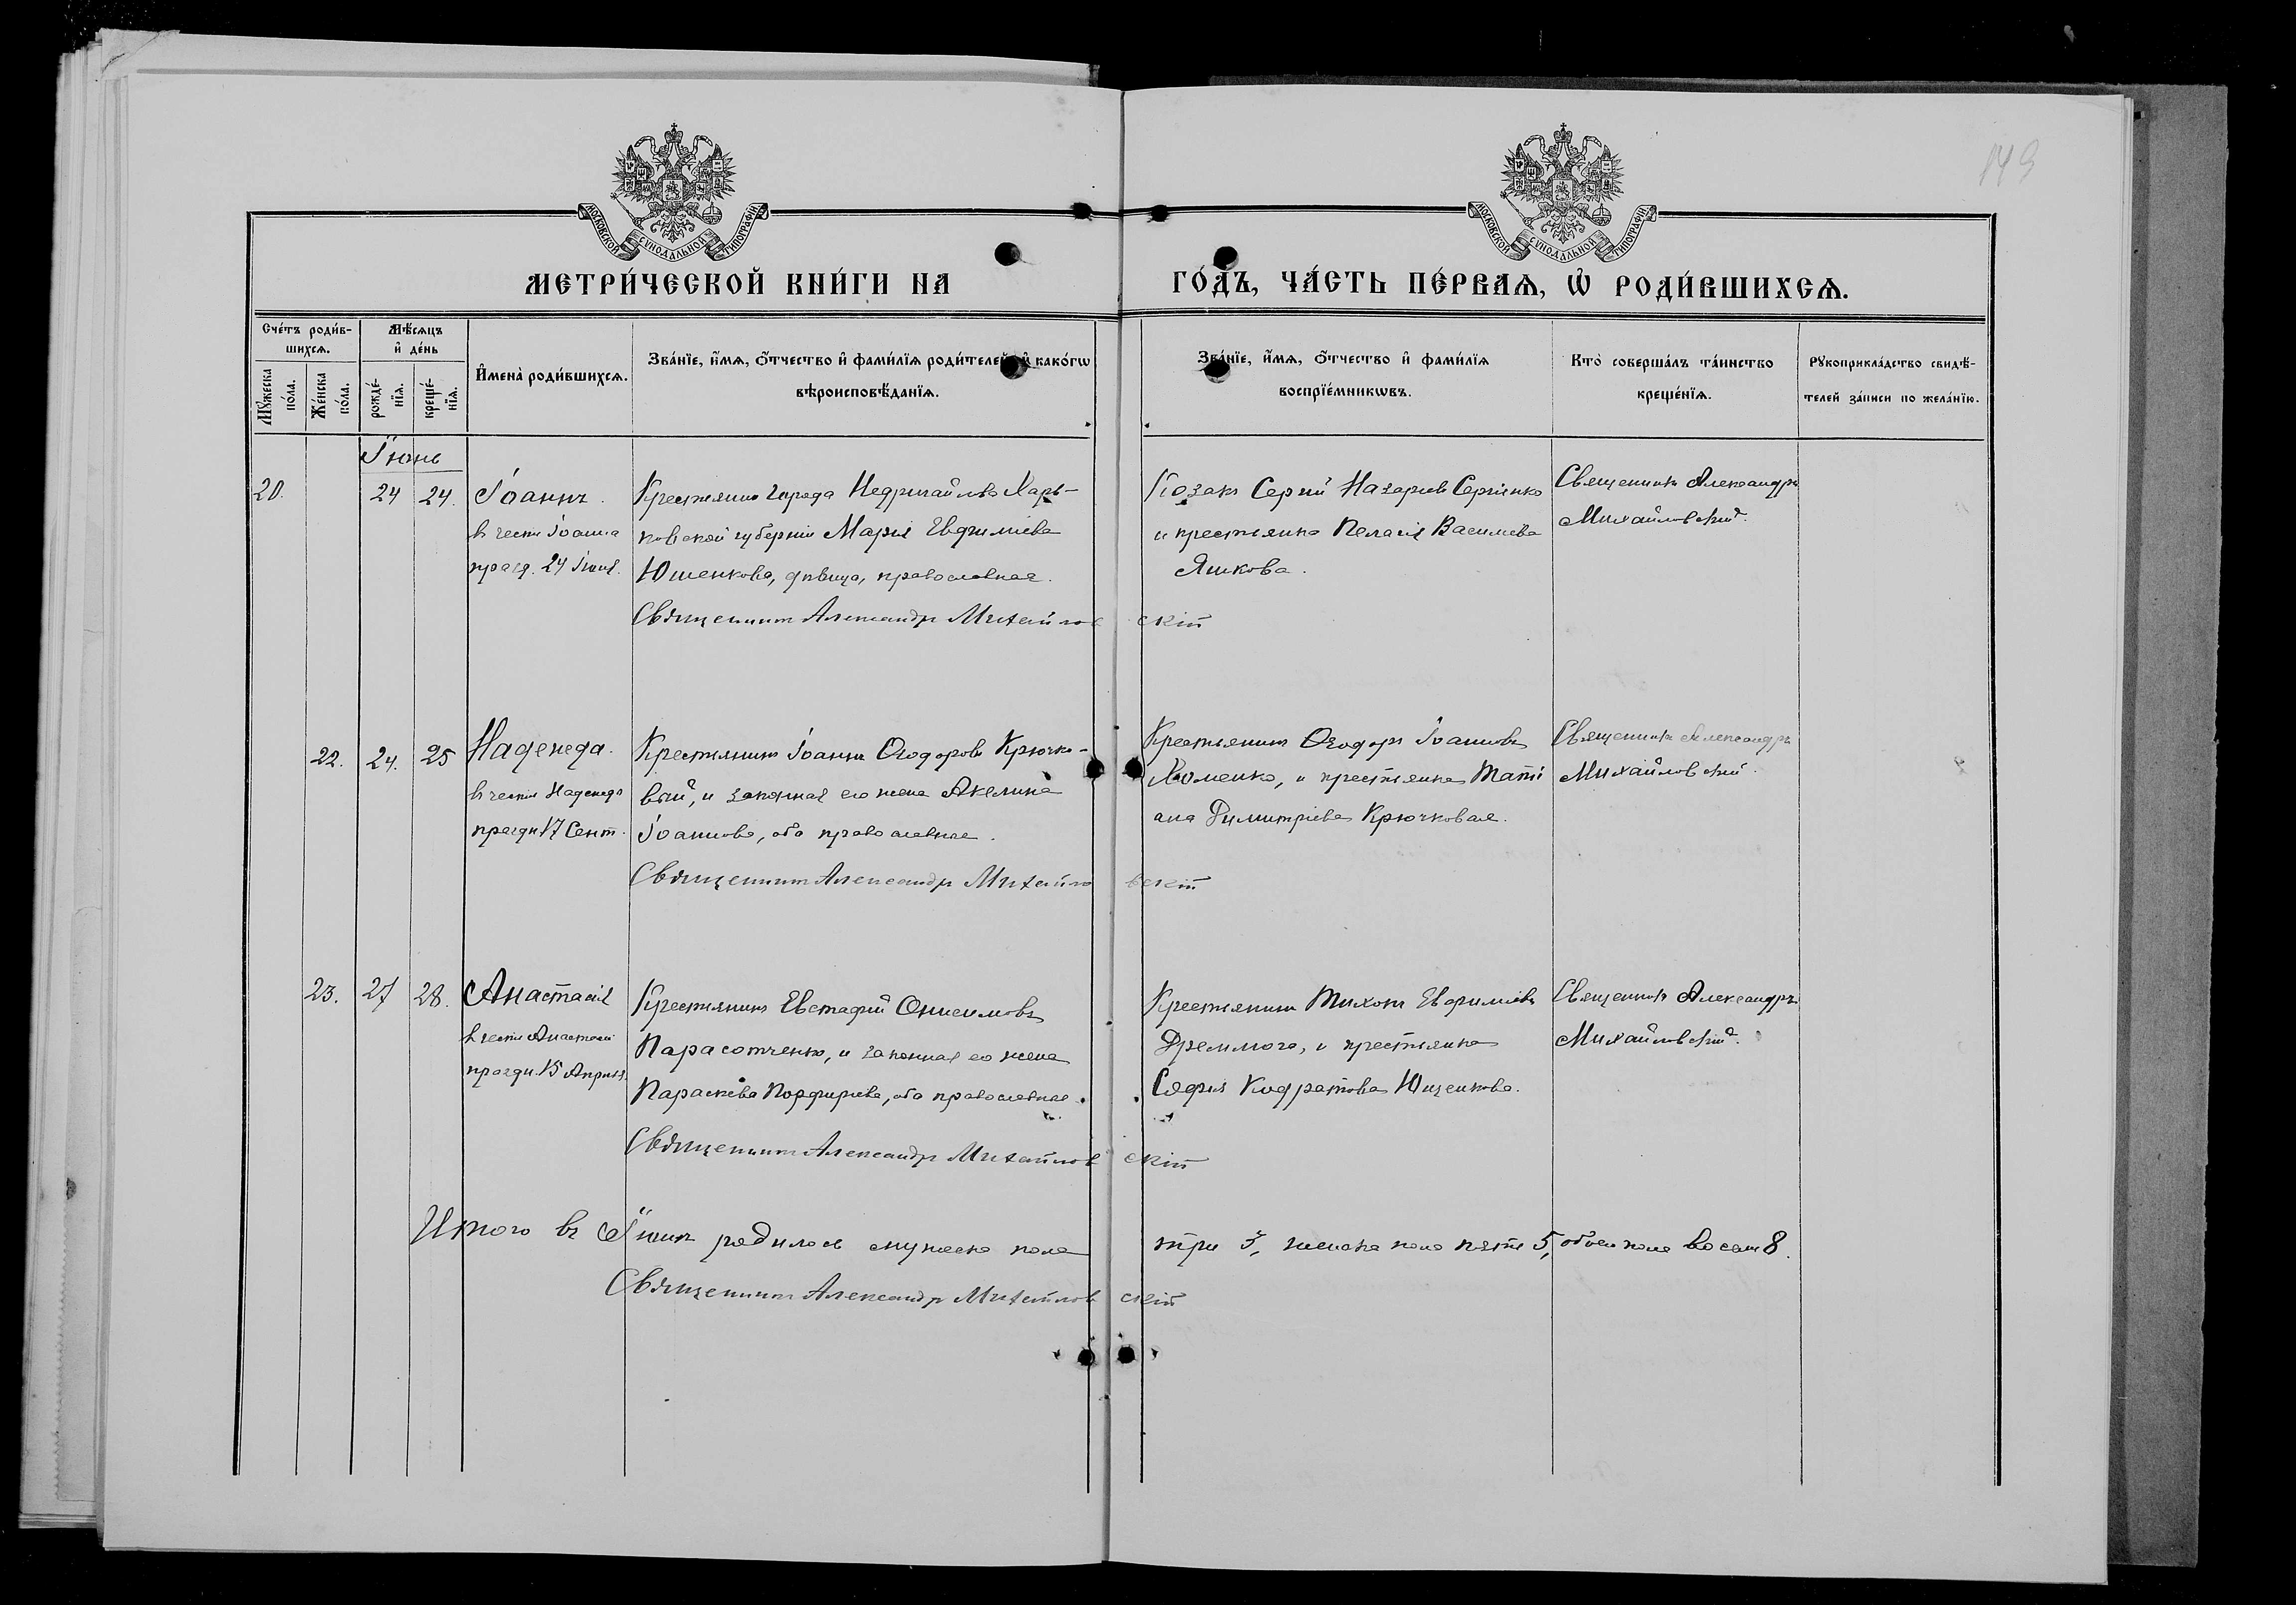 149
МОСКОВСКОЙ СѴНОДАЛЬНОЙ ТИПОГРАФІИ
МОСКОВСКОЙ СѴНОДАЛЬНОЙ ТИПОГРАФІИ
МЕТРИ́ЧЕСКОЙ КНИ́ГИ НА ГО́ДЪ, ЧА́СТЬ ПЕ́РВАѦ, Ѡ҆ РОДИ́ВШИХСѦ.
Сче́тъ роди́в-
шихсѧ.
Мѣ́сѧцъ
и҆ де́нь
Мꙋ́жеска
по́ла.
Же́нска
по́ла.
рожде́-
нїѧ.
креще́-
нїѧ.
И҆мена̀ роди́вшихсѧ.
Зва́нїе, и҆́мѧ, ѻ҆́тчество и҆ фами́лїѧ роди́телей, и҆ како́гѡ
вѣроисповѣ́данїѧ.
Зва́нїе, и҆́мѧ, ѻ҆́тчество и҆ фами́лїѧ
воспрїе́мникѡвъ.
Кто̀ соверша́лъ та́инство
креще́нїѧ.
Рꙋкоприкла́дство свидѣ́-
телей за́писи по жела́нїю.
Іюнь
20. 24 24. Іоаннъ.
в честь Іоанна
празд. 24 Іюня.
Крестьянка города Недригайлова Харь-
ковской губерніи Марія Евфиміева
Юшенкова, дѣвица, православная.
Священникъ Александръ Михайловскій
Козакъ Сергій Назаріевъ Сергіенко
и крестьянка Пелагія Василіева
Яшкова.
Священникъ Александръ
Михайловскій.
22. 24. 25 Надежда.
в честь Надежды
праздн 17 Сент.
Крестьянинъ Іоаннъ Ѳеодоровъ Крючко-
вый, и законная его жена Акелина
Іоаннова, оба православные.
Священникъ Александръ Михайловскій
Крестьянинъ Ѳеодоръ Іоанновъ
Хоменко, и крестьянка Тати
ана Димитріева Крючковая.
Священникъ Александръ
Михайловскій.
23. 27 28. Анастасія
в честь Анастасіи
праздн. 15 Апрѣля.
Крестьянинъ Евстафій Онисимовъ
Парасотченко, и законная его жена
Параскева Порфиріева, оба православные.
Священникъ Александръ Михайловскій
Крестьянинъ Тихонъ Евфиміевъ
Дремлюга, и крестьянка
Софія Кодратова Ющенкова.
Священникъ Александръ
Михайловскій.
Итого въ Іюнѣ родилось мужеска пола три 3, женска пола пять 5, обоего пола восемь 8.
Священникъ Александръ Михайловскій